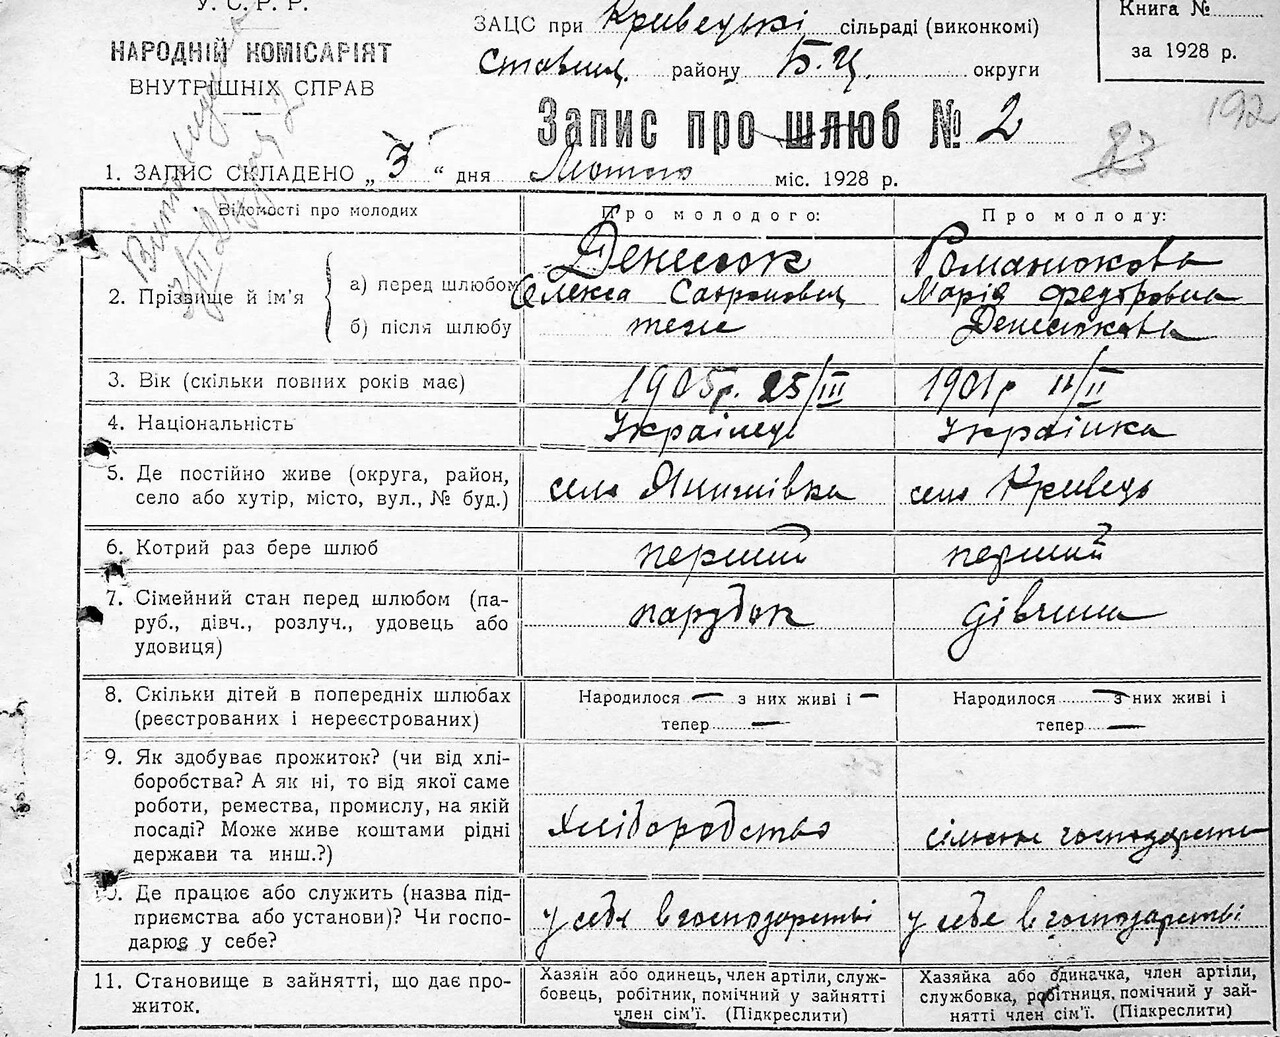 У. С. Р. Р.
НАРОДНІЙ КОМІСАРІЯТ
ВНУТРІШНІХ СПРАВ
ЗАЦС при Кривецькі сільраді (виконкомі)
Ставищ. району Б.Ц. округи
Книга №
за 1928 р.
Запис про шлюб № 2
192
83
1. ЗАПИС СКЛАДЕНО „ 3 “ дня Лютого міс. 1928 р.
Відомості про молодих
Про молодого:
Про молоду:
2. Прізвище й ім'я
а) перед шлюбом
Денесюк
Олекса
Романюкова
Марія Федоровна
б) після шлюбу
теж
Денесюкова
3. Вік (скільки повних років має)
1905р. 25/III
1901р 11/II
4. Національність
Українець
Українка
5. Де постійно живе (округа, район,
село або хутір, місто, вул., № буд.)
село
село Кривець
6. Котрий раз бере шлюб
перший
перший
7. Сімейний стан перед шлюбом (па-
руб., дівч., розлуч., удовець або
удовиця)
парубок
дівчина
8. Скільки дітей в попередніх шлюбах
(реєстрованих і нереєстрованих)
Народилося — з них живі і —
тепер —
Народилося — з них живі і
тепер —
9. Як здобуває прожиток? (чи від хлі-
боробства? А як ні, то від якої саме
роботи, ремества, промислу, на якій
посаді? Може живе коштами рідні
держави та инш.?)
Хліборобство
сільське господарство
10. Де працює або служить (назва під-
приємства або установи)? Чи госпо-
дарює у себе?
у себе в господарстві
у себе в господарстві
11. Становище в зайнятті, що дає про-
житок.
Хазяїн або одинець, член артіли, служ-
бовець, робітник, помічний у зайнятті
член сім'ї. (Підкреслити)
Хазяйка або одиначка, член артіли,
службовка, робітниця, помічний у зай-
нятті член сім'ї. (Підкреслити)